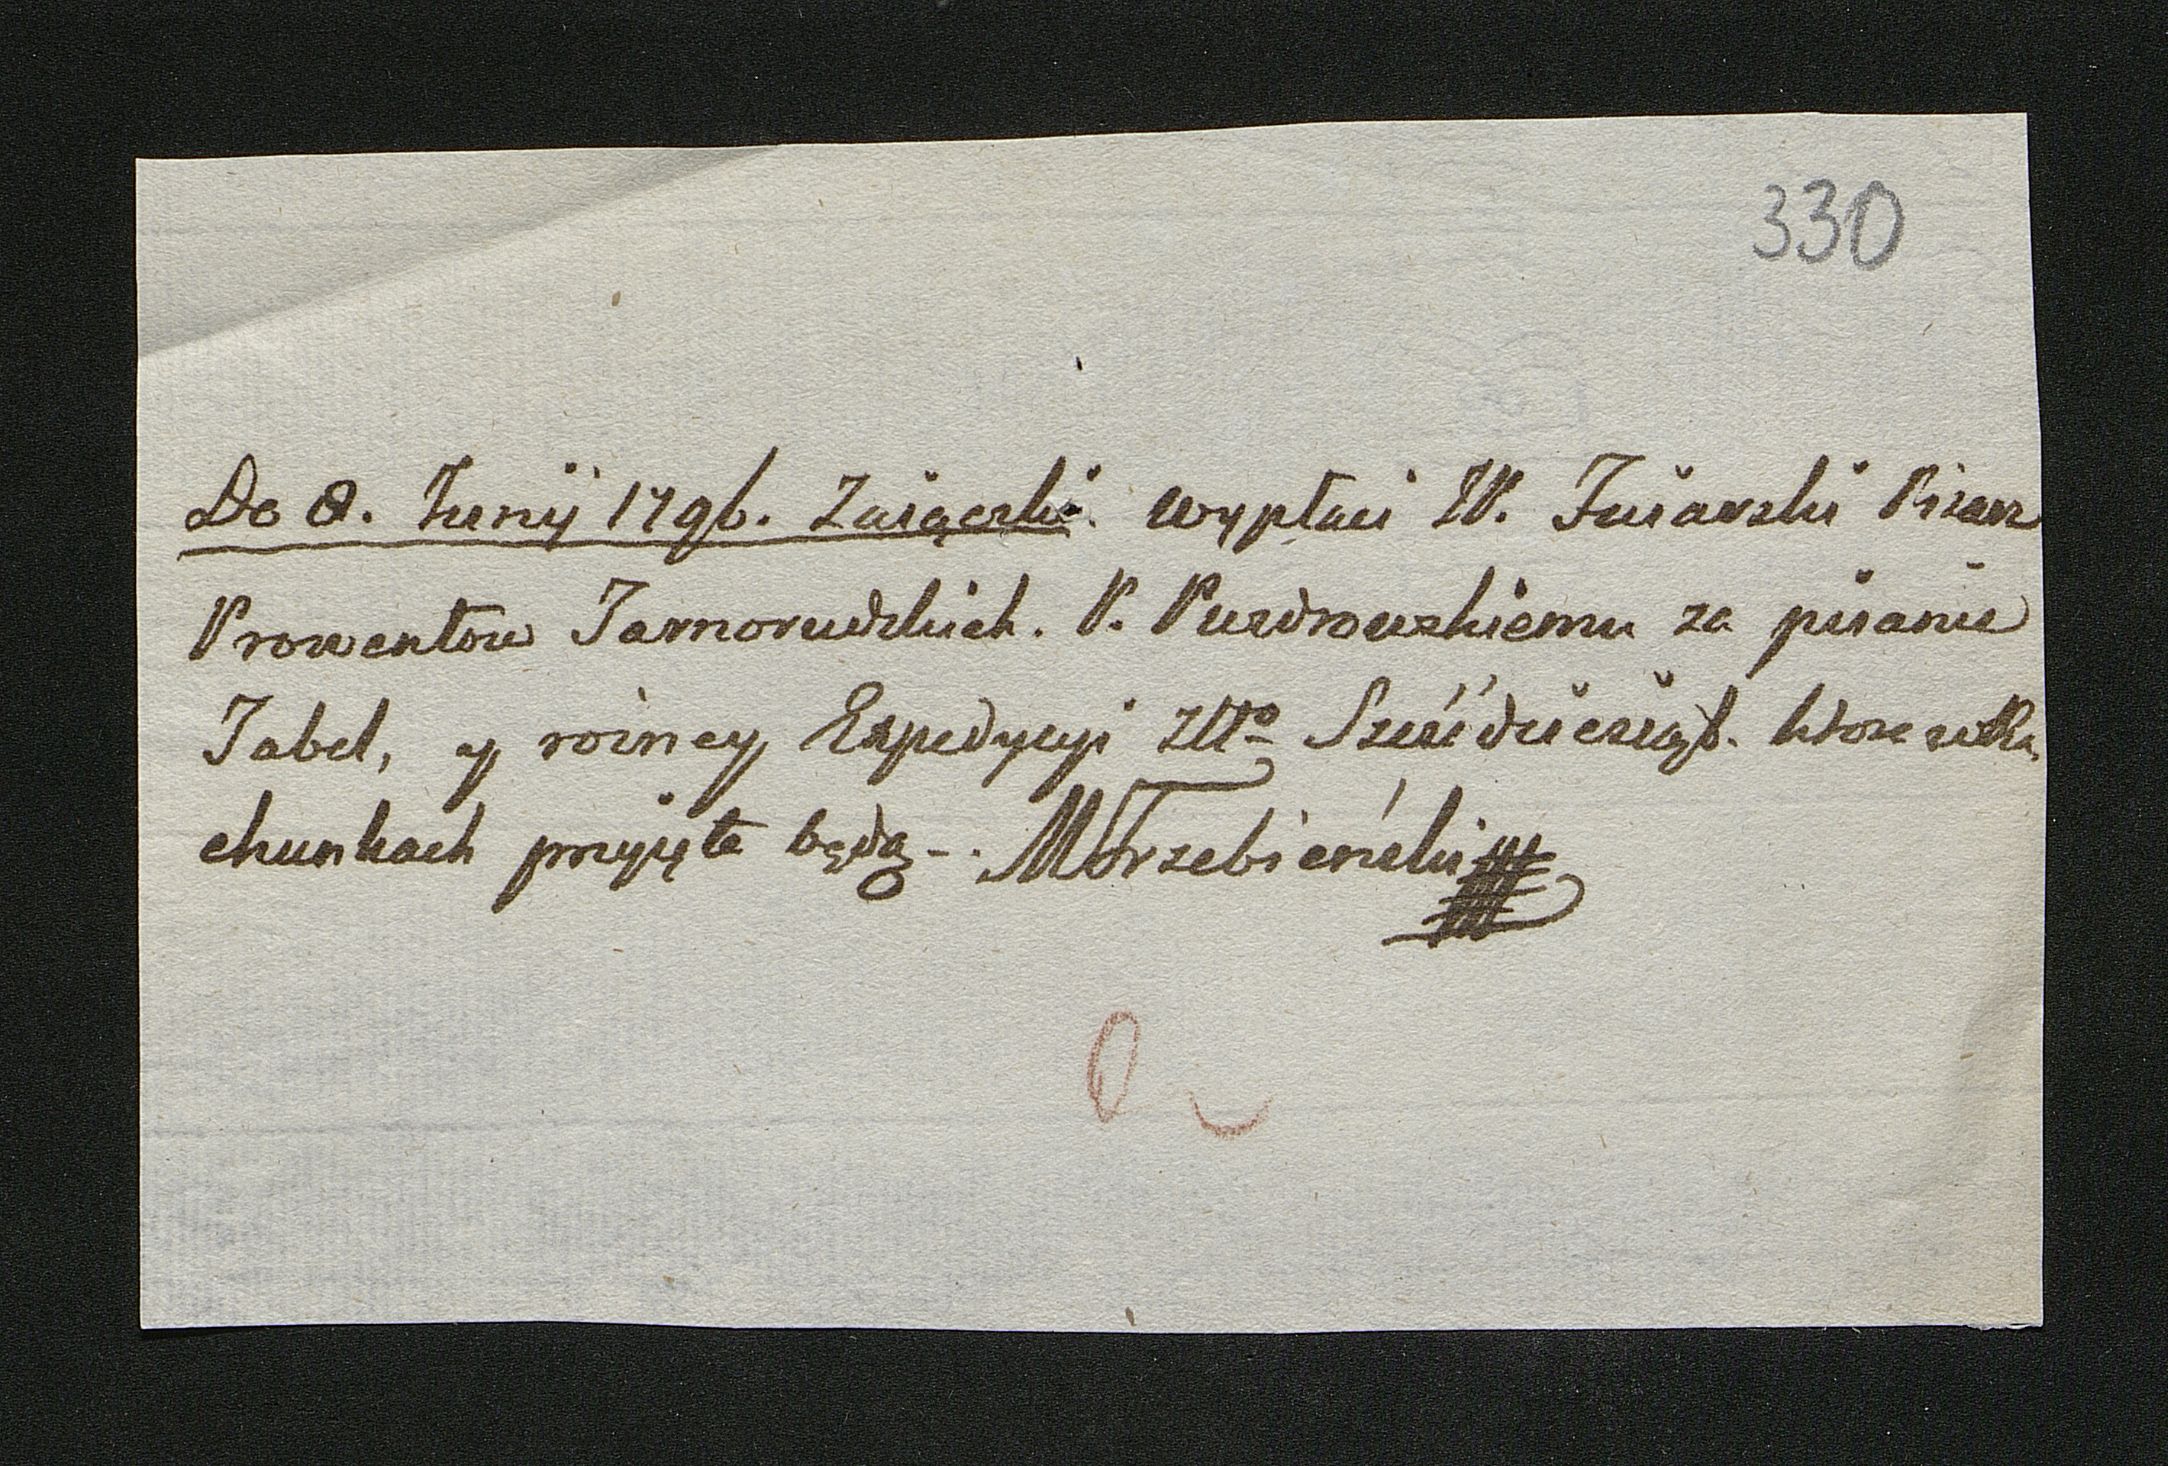 330
De 8. Junij 1796. Zaiączki. wypłaci W. Jusiarski Pisarz
Prowentow Tarnorudzkich. P. Puzdrowskiemu za pisanie
Tabel, y rożney Expedycyi Złło Sześćdziesiąt. ktore w Ra,
chunkach przyięte będą -. MTrzebieński